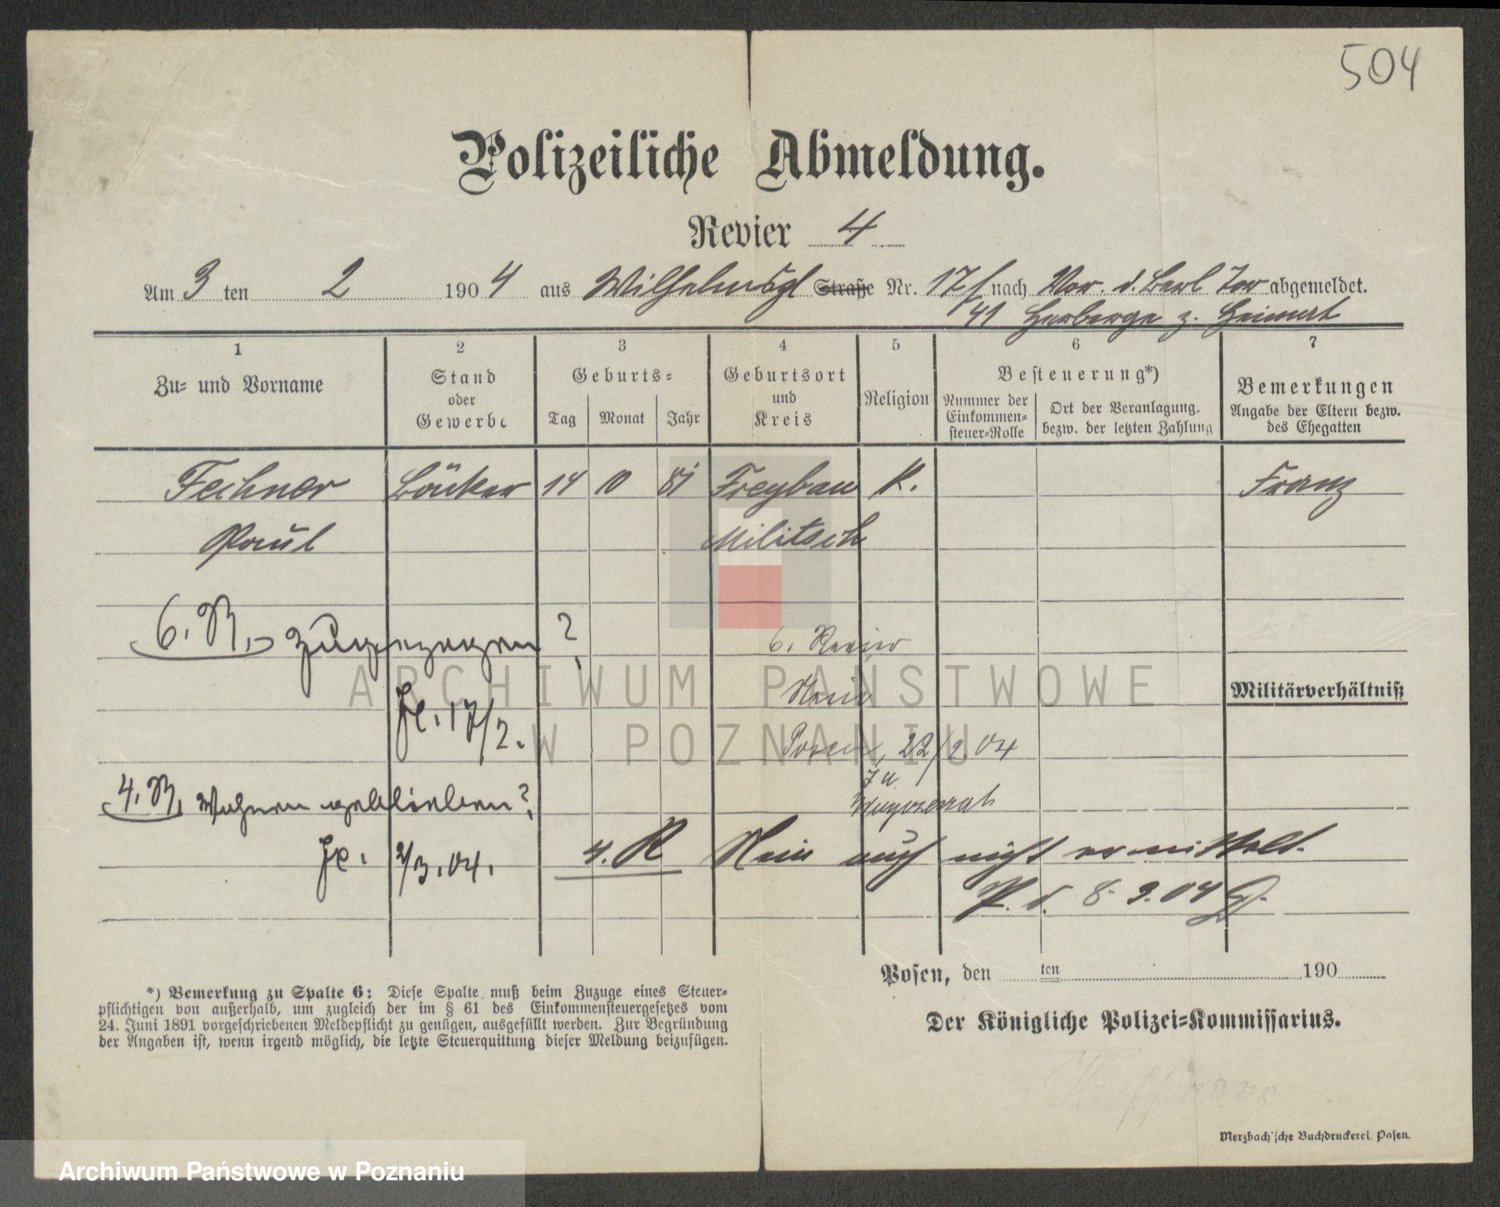 504
Polizeiliche Abmeldung.
Revier 4
Am 3 ten 2 1904 aus Wilhelmspl Straße Nr. 17/ nach Vor. d. Berl Tor abgemeldet.
41 Herberge z. Heimat
1 2 3 4 5 6 7
Zu- und Vorname Stand oder Gewerbe Geburts- Tag Monat Jahr Geburtsort und Kreis Religion Besteuerung*) Nummer der Einkommen-steuer-Rolle Ort der Veranlagung, bezw. der letzten Zahlung Bemerkungen Angabe der Eltern bezw. des Ehegatten
Fechner 14 10 81 Freyhan K. Franz
Paul Militsch
6. R. zugezogen ?
6. Revier
Nein
Militärverhältniß
17/2.
Posen, 22/2 04
4. R. Wohnen geblieben ?
2/3. 04. 4. R Nein auch nicht ermittelt.
P. d. 8. 3. 04
Posen, den ten 190
*) Bemerkung zu Spalte 6: Diese Spalte muß beim Zuzuge eines Steuer-
pflichtigen von außerhalb, um zugleich der im § 61 des Einkommensteuergesetzes vom
24. Juni 1891 vorgeschriebenen Meldepflicht zu genügen, ausgefüllt werden. Zur Begründung
der Angaben ist, wenn irgend möglich, die letzte Steuerquittung dieser Meldung beizufügen.
Der Königliche Polizei-Kommissarius.
Merzbach'sche Buchdruckerei, Posen.
ARCHIWUM PAŃSTWOWE
W POZNANIU
Archiwum Państwowe w Poznaniu